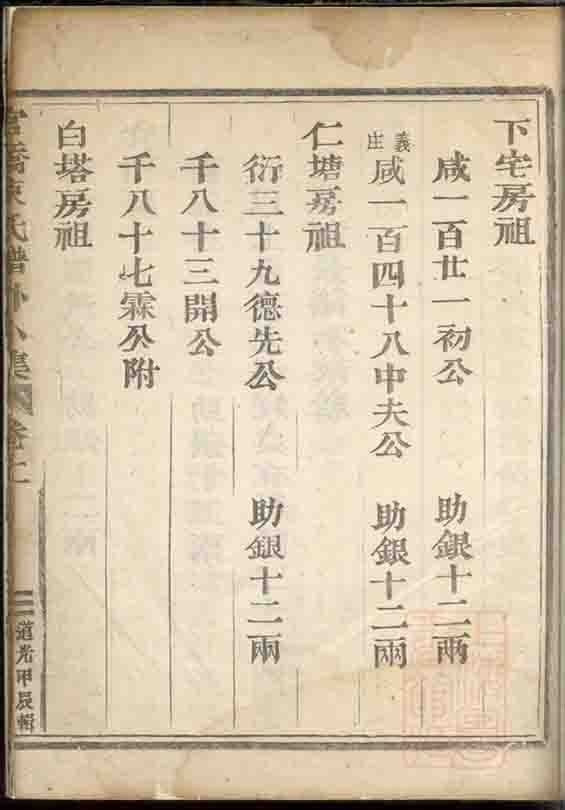 下宅房祖
咸一百廿一初公 助銀十二兩
義庄 咸一百四十八中夫公 助銀十二兩
仁塘房祖
衍三十九德先公 助銀十二兩
千八十三開公
千八十七霖公附
白塔房祖
氏譜外 集 卷上 二 道光甲辰輯